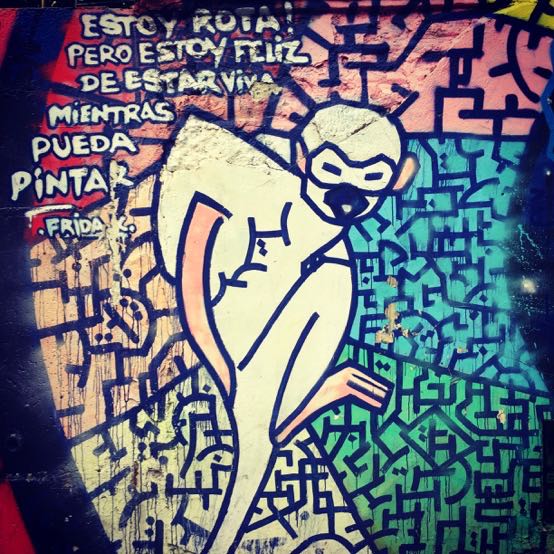 ESTOY ROTA!
PERO ESTOY FELIZ
DE ESTAR VIVA
MIENTRAS
PUEDA
PINTAR
.FRIDA K.